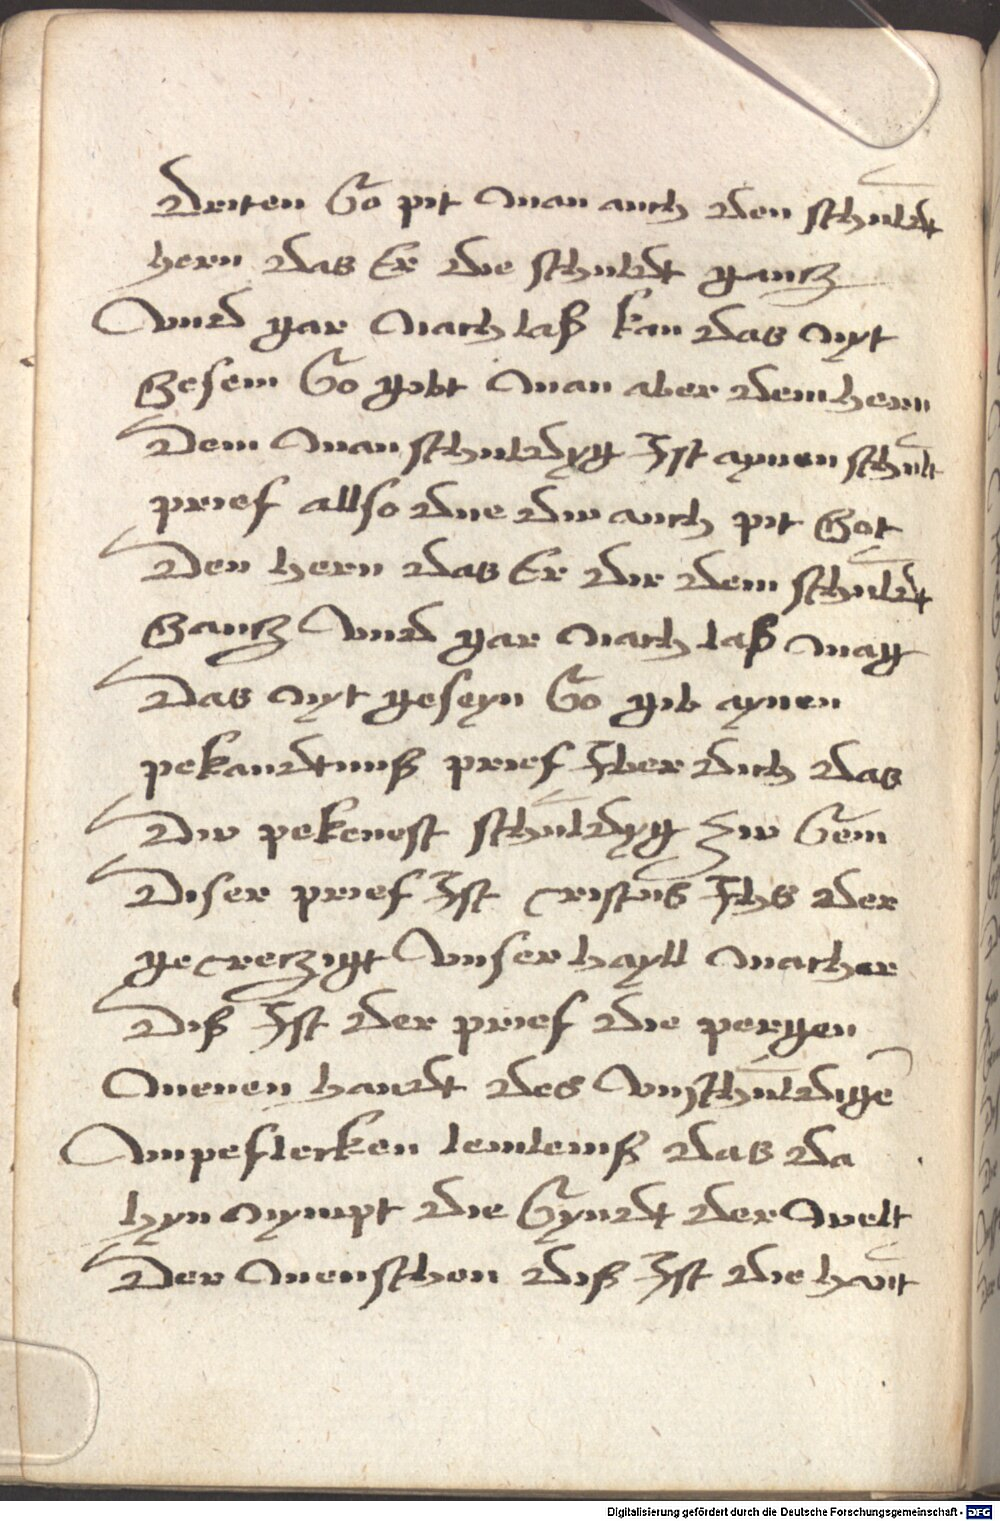 driten So pit man auch den schuldt
hern das Er die schuldt gantz
vnd gar nach laß kan das nyt
Gesein So gibt man aber dem hern
dem man schuldyg Ist aynen schult
prief allso due du auch pit Got
den hern das Er dir dein schuldt
Gantz vnd gar nach laß mag
das nyt geseyn So gib aynen
pekandtnuß prief Iber dich das
du pekenest schuldyg zu Sein
diser prief Ist cristus Ihs der
gecreczigt vnser hayll macher
diß Ist der prief die pergen
menen haudt des vnschuldigē
vnpeflecken lemleinß das da
hyn nympt die Syndt der welt
der menschen diß Ist die haut
Digitalisierung gefördert durch die Deutsche Forschungsgemeinschaft - DFG